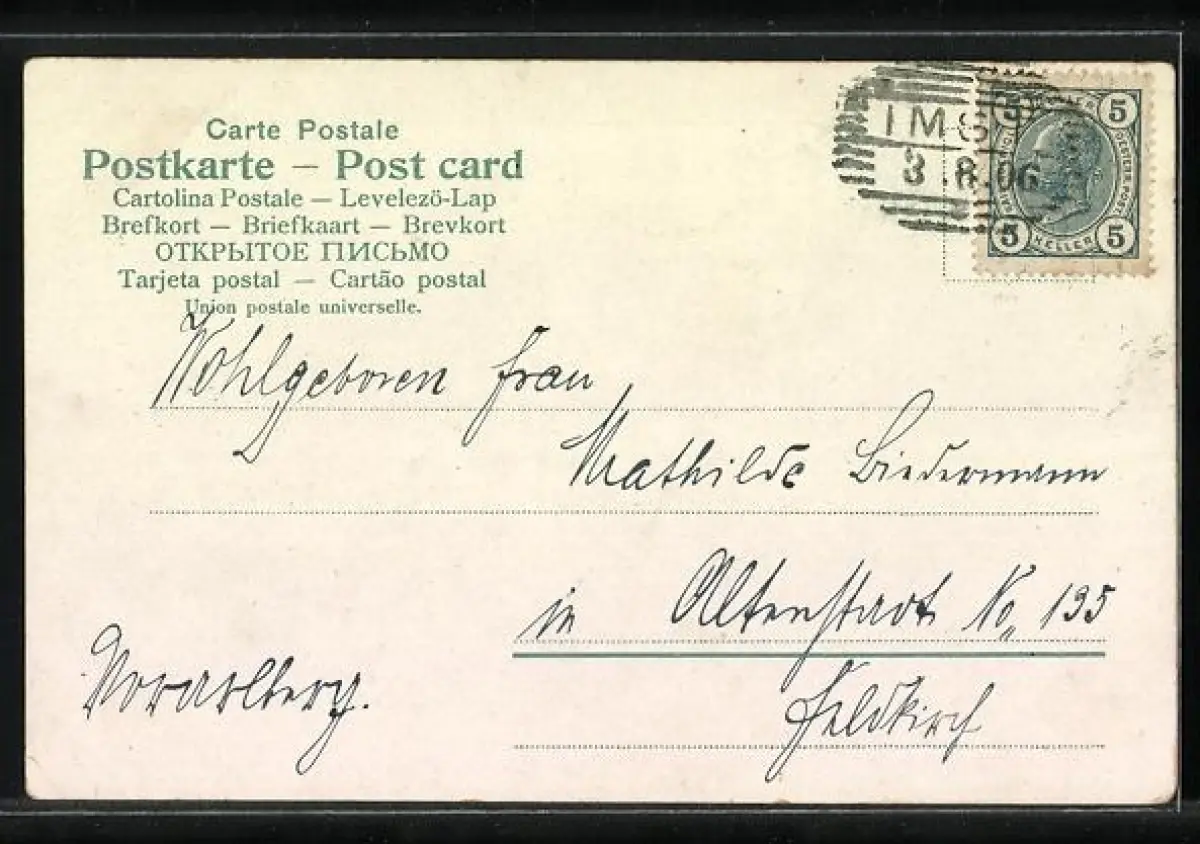 Carte Postale
Postkarte – Post card
Cartolina Postale — Levelező-Lap
Brefkort — Briefkaart — Brevkort
ОТКРЫТОЕ ПИСЬМО
Tarjeta postal — Cartão postal
Union postale universelle.
IMS
3. 8. 06
5 5
5 HELLER 5
Wohlgeboren Frau
Mathilde Biedermann
in Altenstadt No. 135
Feldkirch
Vorarlberg.